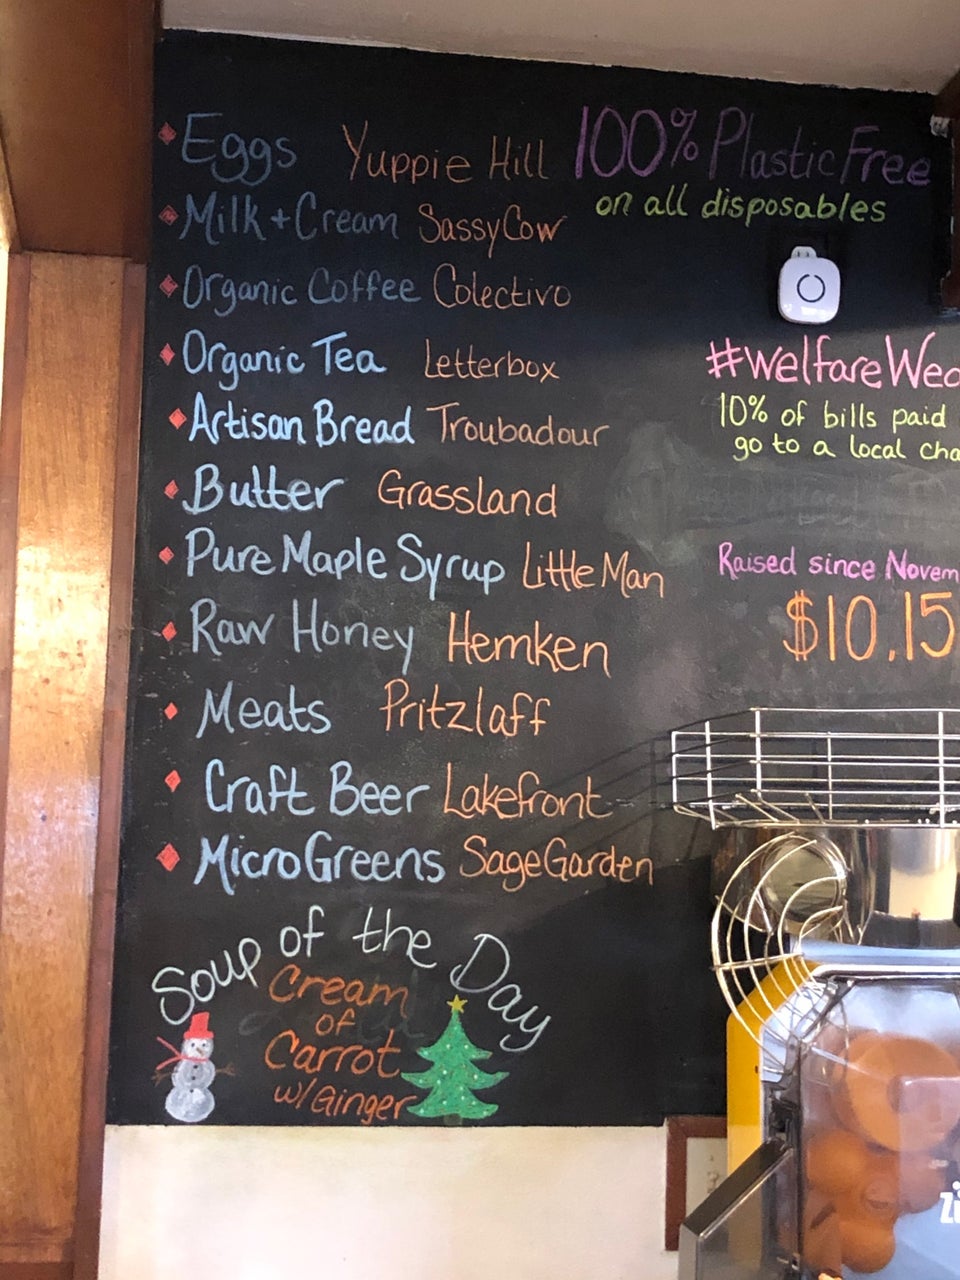 Eggs Yuppie Hill
Milk + Cream Sassy Cow
Organic Coffee Colectivo
Organic Tea Letterbox
Artisan Bread Troubadour
Butter Grassland
Pure Maple Syrup Little Man
Raw Honey Hemken
Meats Pritzlaff
Craft Beer Lakefront
MicroGreens Sage Garden
Soup of the Day
Cream
of
Carrot
w/ Ginger
100% Plastic Free
on all disposables
#WelfareWed
10% of bills paid
go to a local cha
Raised since Novem
$10,15